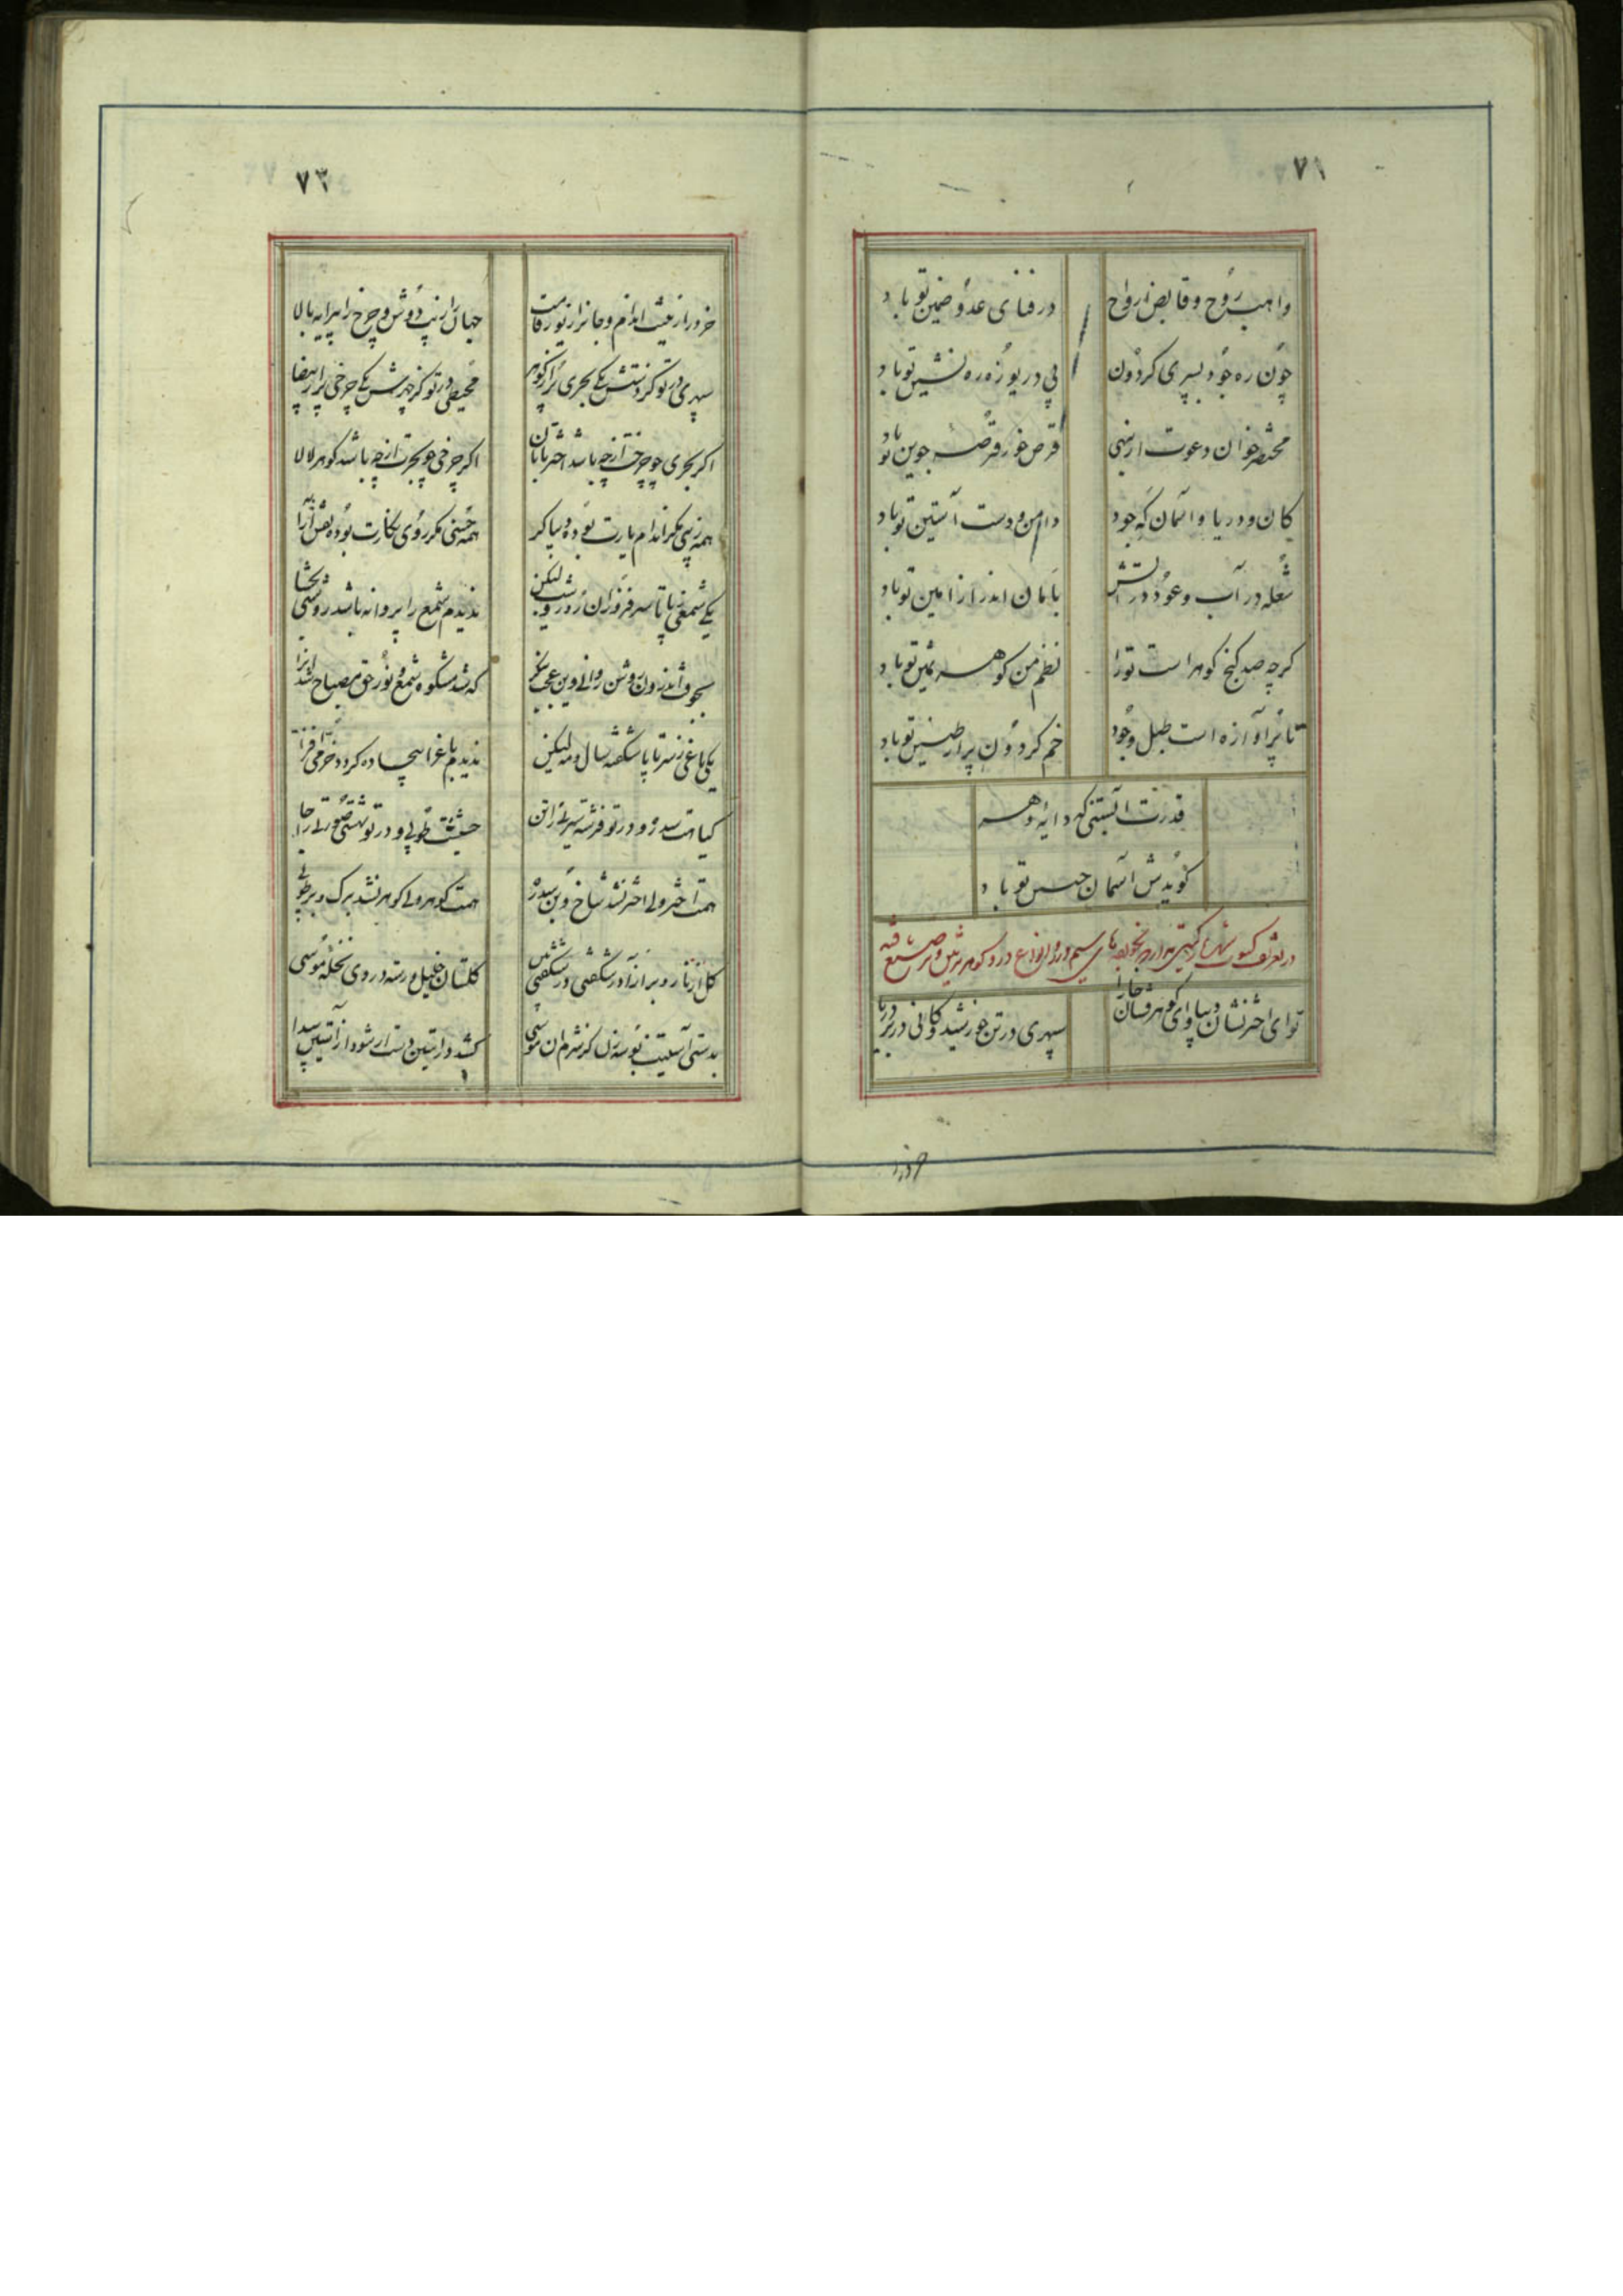 ۷۱
واهب روح و قابض ارواح
در فنای عدو ضمین تو باد
چون ره جود بسپری گردون
پی دریوزه ره نشین تو باد
محتضر خوان دعوت ار بنهی
قرص خور قرصه جوین تو باد
کان و دریا و آسمان که جود
دامن و دست آستین تو باد
شعله در آب و عود در آتش
با امان اندر از امین تو باد
کرچه صد کنج کوهر است تو را
نظم من کوهر ثمین تو باد
تا پر آوازه است طبل وجود
خم کردون پر از طنین تو باد
قدرت آبستنی که دایه دهر
کویدش آسمان جنین تو باد
در تعریف کسوت
توای اختر نشان دیبا و ای کوهر فشان خارا
سپهری در تن خورشید و کانی در بر دریا
۷۳
خرد را زیب اندام و جان را زیور قامت
جهان را زیب دوش و چرخ را پیرایه بالا
سپهری در تو کز دستش یکی بحری پر از کوهر
محیطی در تو کز چهرش یکی چرخی پر از بیضا
اکر بحری چو چرخت از چه باشد اختر تابان
اکر چرخی چو بحرت از چه باشد کوهر لالا
همه زیبی مکر اندام یارت بوده دیبا کر
همه حسنی مکر روی نکارت بوده نقش آرا
یکی شمعی ز پا تا سر فروزان روز و شب لیکن
ندیدم شمع را پروانه باشد روشنی بخشا
بجوف اندرون روشن روانی وین عجب بنکر
که شد مشکوه شمع و نور حق مصباح شد آنرا
یکی باغی ز سر تا پا شکفته سال و مه لیکن
ندیدم باغرا بیجاده کردد خرمی افزا
کیاهت سدره و در تو فرشته سیرتی را تن
حشیشت طوبی و در تو بهشتی صورتی را جا
همت اختر ولی اختر نشد شاخ و بن سدره
همت کوهر ولی کوهر نشد برک و بر طوبی
کل از نار و بر از آذر شکفتی در شکفتی بین
کلستان خلیل و رسته در وی نخله موسی
بدستی آستینت بوسه زن کز شرم آن موسی
کشد در آستین دست ار شود از آستین پیدا